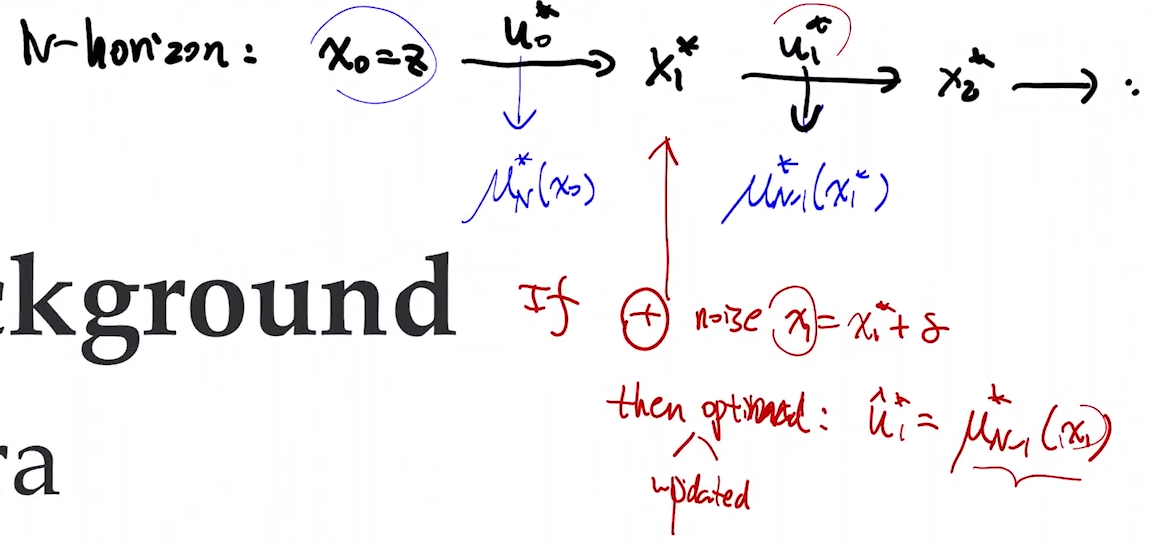 N-horizon: x₀=z u₀* → x₁* u₁* → x₂* → :
μ*_N(x₀) μ*_{N-1}(x₁*)
ckground
If ⊕ noise x₁ = x₁* + δ
then optimal: û₁* = μ*_{N-1}(x₁)
ra
updated